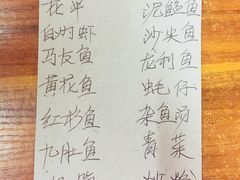 花甲
白灼虾
马友鱼
黄花鱼
红衫鱼
九肚鱼
泥鯭鱼
沙尖鱼
龙利鱼
蚝仔
杂鱼汤
青菜